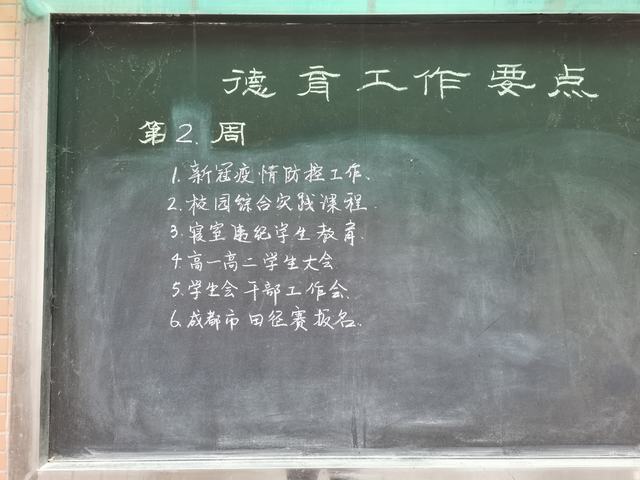 德育工作要点
第2.周
1.新冠疫情防控工作.
2.校园综合实践课程.
3.寝室违纪学生教育.
4.高一高二学生大会
5.学生会干部工作会.
6.成都市田径赛报名.